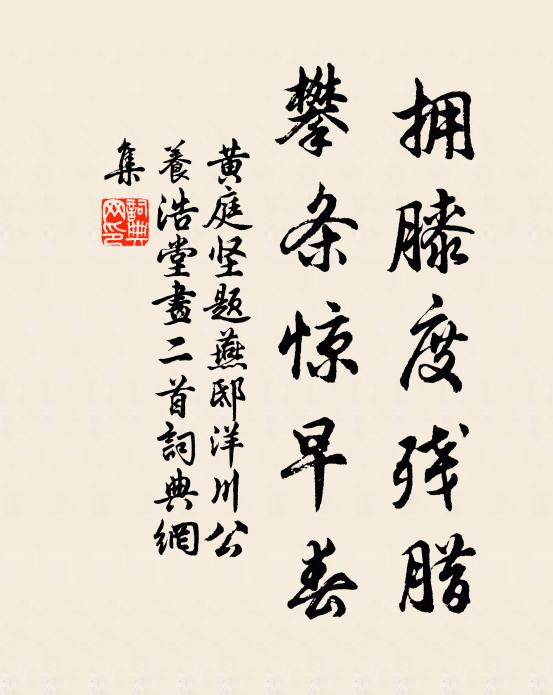 拥膝度残腊
攀条惊早春
黄庭坚题燕邸洋川公
養浩堂畫二首詞典網
集
詞典
网印